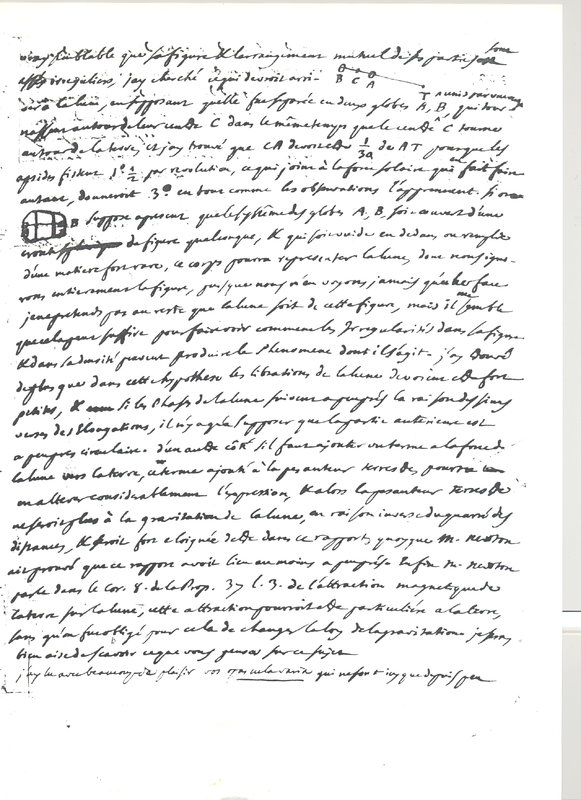 vraysemblable que sa figure & l'arrangement mutuel de ses parties sont
irreguliers, j'ay cherché ce qui devroit arri-
B C A
T
ver à la lune, en supposant qu'elle fust formée en deux globes A, B qui tour
nassent autour de leur centre C dans le même temps que le centre C tourne
autour de la terre, et j'ay trouvé que CA devroit être 1/30 de AT pour que les
apsides fissent 1° 1/2 par revolution, ce qui joint à la force solaire qui en fait faire
autant, donneroit 3° en tout comme les observations l'apprennent. Si on
B suppose apresent que le systême des globes A, B, soit couvert d'une
croute de figure quelconque, & qui soit vuide en dedans ou remplie
d'une matiere fort rare, ce corps pourra representer la lune, dont nous igno-
rons entierement la figure, puisque nous n'en voyons jamais qu'une face
je ne pretends pas au reste que la lune soit de cette figure, mais il me semble
que cela peut suffire pour faire voir comment les Irregularités dans la figure
& dans la densité peuvent produire le Phenomene dont il s'agit. j'ay trouvé
de plus que dans cette hypothese les librations de la lune devroient etre fort
petites, & si les Phases de la lune suivent a peu près la raison des sinus
verses des Elongations, il n'y a qu'à supposer que la partie anterieure est
a peu pres circulaire. d'un autre côté s'il faut ajouter un terme a la force de
la lune vers la terre, ce terme ajouté à la pesanteur terrestre pourra
en alterer considerablement l'expression, & alors la pesanteur terrestre
ne seroit plus à la gravitation de la lune, en raison inverse du quarré des
distances, & seroit fort eloignée d'etre dans ce rapport, quoyque M. newton
ait prouvé que ce rapport avoit lieu au moins a peu près. Enfin M. newton
parle dans le Cor. 8. de la Prop. 37 l. 3. de l'attraction magnetique de
la terre sur la lune, cette attraction pourroit etre particuliere a la terre,
sans qu'on fut obligé pour cela de changer la loy de la gravitation je serai
bien aise de scavoir ce que vous pensez sur ce sujet
j'ay lu avec beaucoup de plaisir vos opuscula varia qui ne sont icy que depuis peu